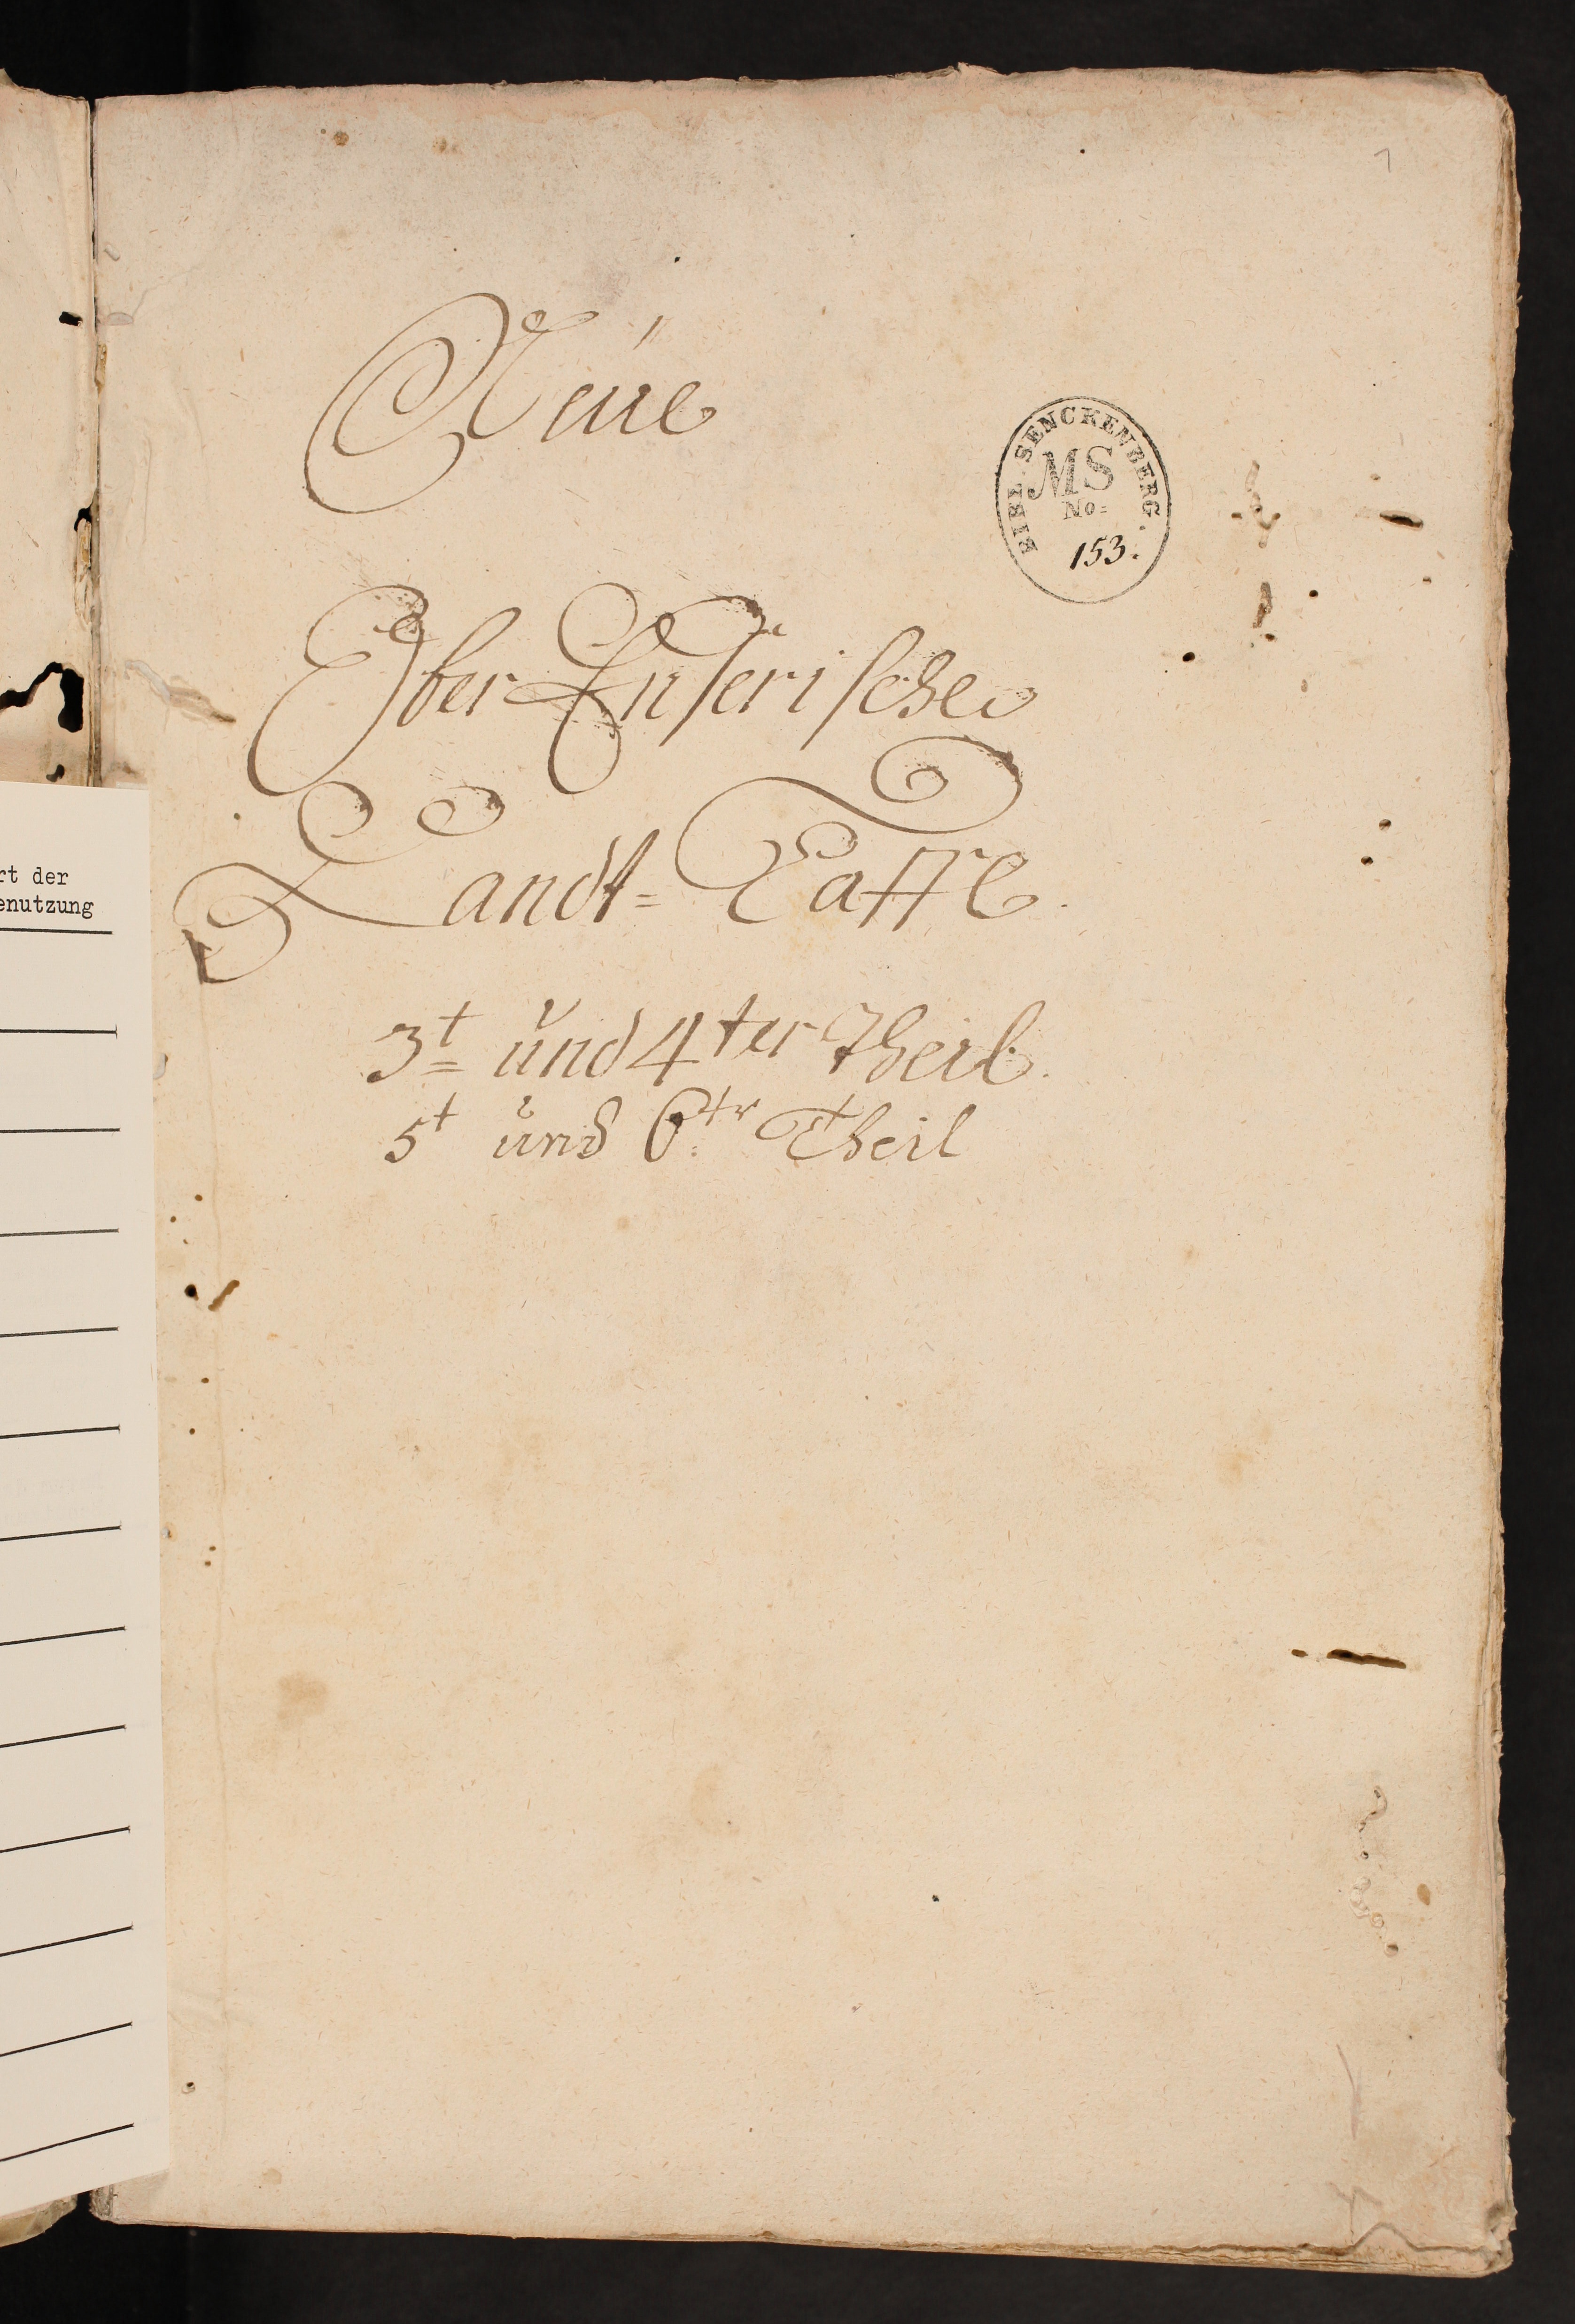 1
Neüe
BIBL. SENCKENBERG.
MS
No:
153.
Ober-Enserische
Landt=Taffl
3t und 4ter Theil.
5t und 6tr Theil
rt der
enutzung